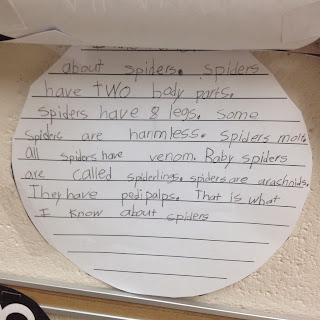 about spiders. Spiders
have two body parts.
Spiders have 8 legs. Some
spiders are harmless. Spiders molt.
all spiders have venom. Baby spiders
are called spiderlings. spiders are arachnids.
They have pedipalps. That is what
I know about spiders